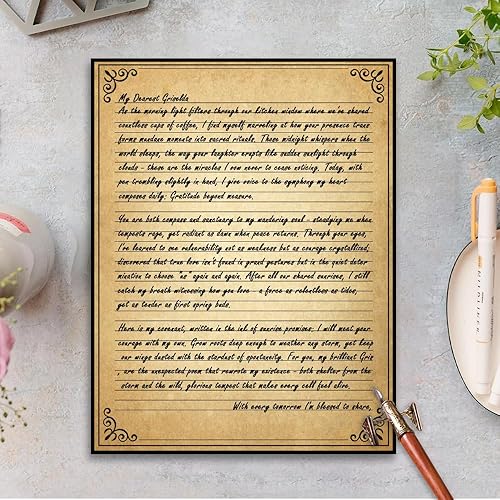 My Dearest Griselda
As the morning light filters through our kitchen window where we've shared
countless cups of coffee, I find myself marveling at how your presence trans
forms mundane moments into sacred rituals. Those midnight whispers when the
world sleeps, the way your laughter erupts like sudden sunlight through
clouds - these are the miracles I vow never to cease noticing. Today, with
pen trembling slightly in hand, I give voice to the symphony my heart
composes daily: Gratitude beyond measure.
You are both compass and sanctuary to my wandering soul - steadying me when
tempests rage, yet radiant as dawn when peace returns. Through your eyes,
I've learned to see vulnerability not as weakness but as courage crystallized;
discovered that true love isn't found in grand gestures but in the quiet deter
mination to choose "us" again and again. After all our shared sunrises, I still
catch my breath witnessing how you love - a force as relentless as tides,
yet as tender as first spring buds.
Here is my covenant, written in the ink of sunrise promises: I will meet your
courage with my own, Grow roots deep enough to weather any storm, yet keep
our wings dusted with the stardust of spontaneity. For you, my brilliant Gris
, are the unexpected poem that rewrote my existence - both shelter from the
storm and the wild, glorious tempest that makes every cell feel alive.
With every tomorrow I'm blessed to share,